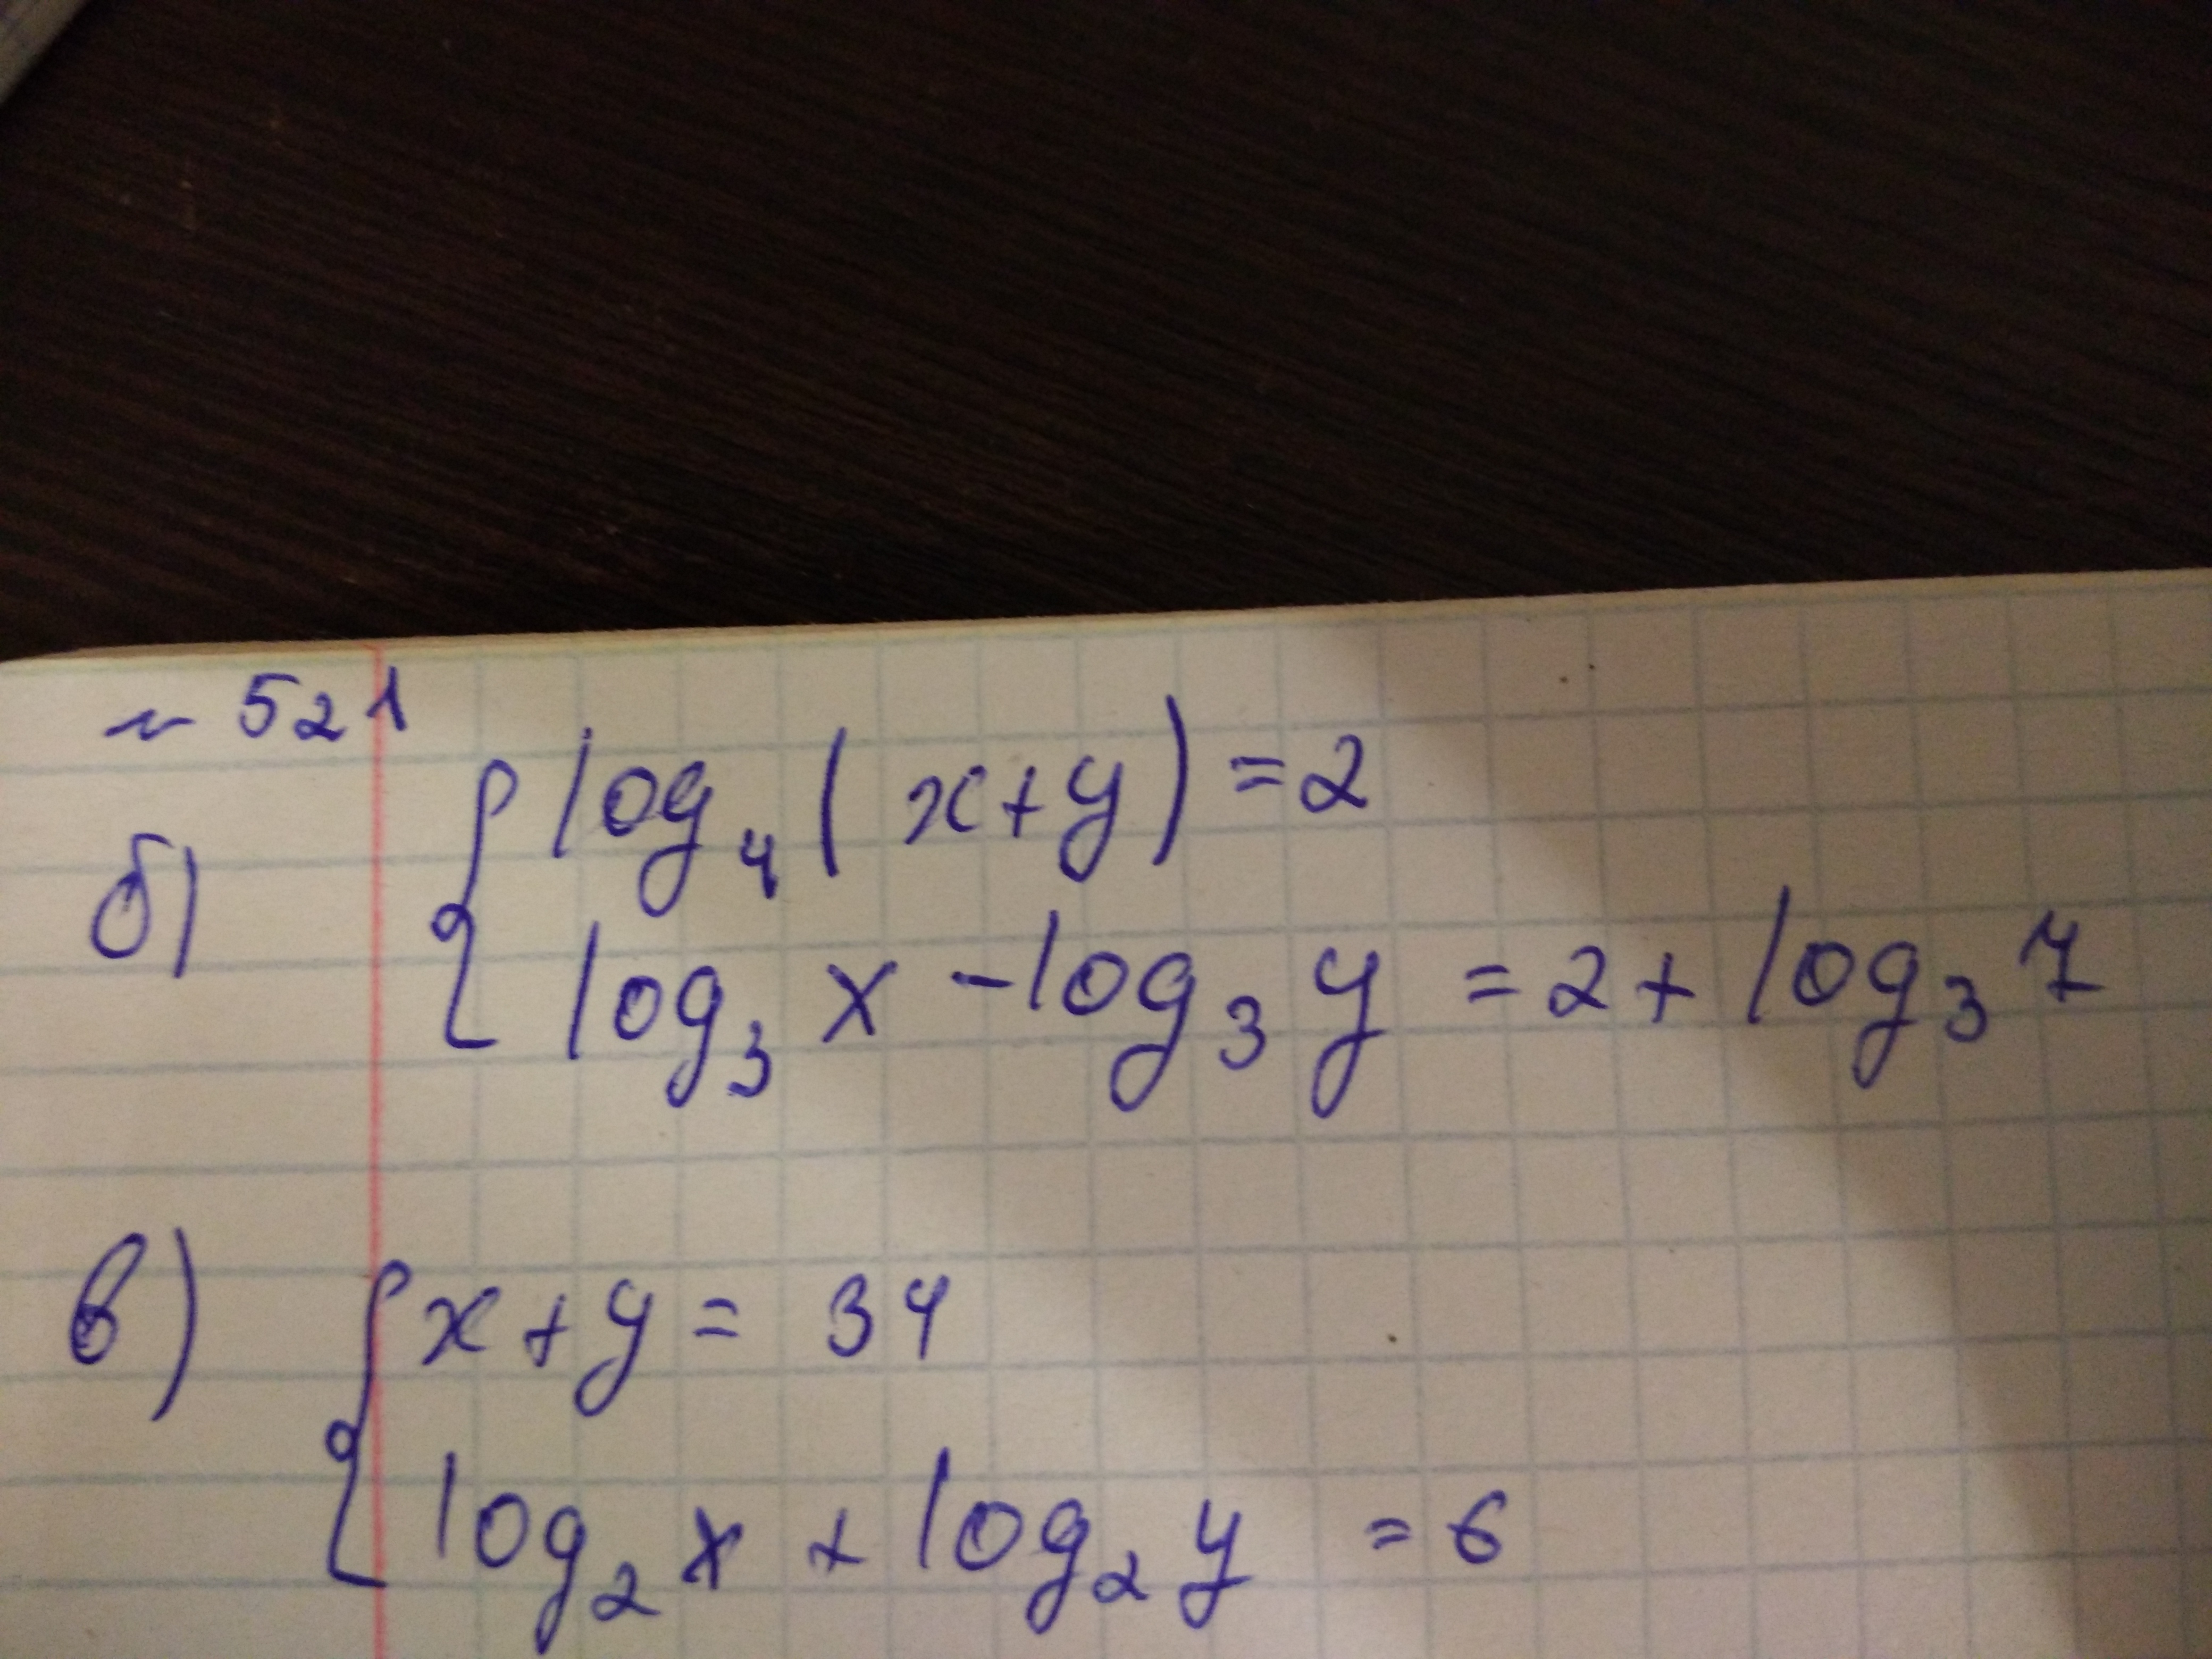 № 521
б) { log₄(x+y)=2
log₃ x - log₃ y = 2 + log₃ 7
в) { x+y= 34
log₂ x + log₂ y = 6